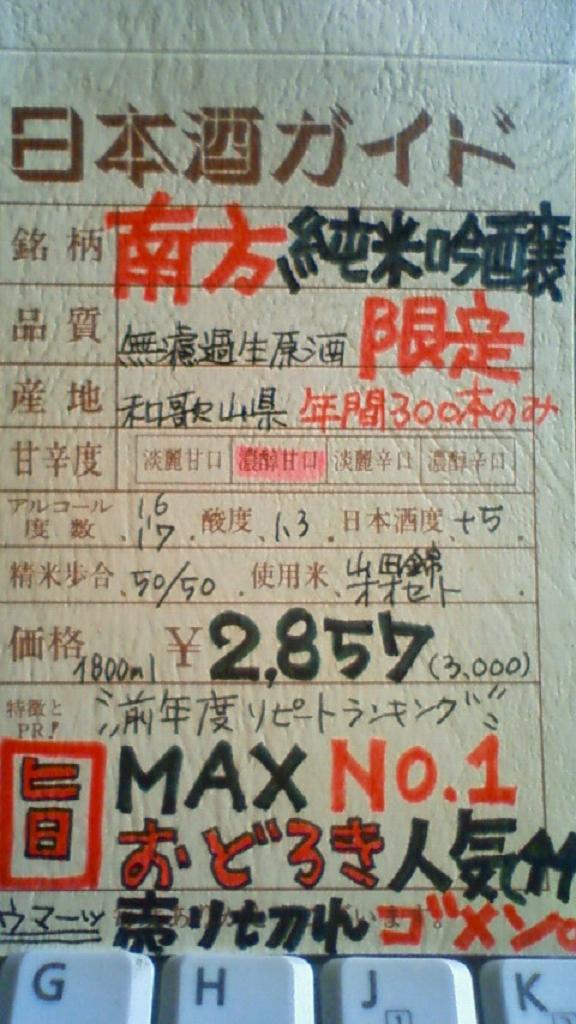 日本酒ガイド
銘柄 南方 純米吟醸
品質 無濾過生原酒 限定
産地 和歌山県 年間300本のみ
甘辛度 淡麗甘口 濃醇甘口 淡麗辛口 濃醇辛口
アルコール度数 16 17 酸度 1.3 日本酒度 +5
精米歩合 50/50 使用米 山田錦 オオセト
価格 1800ml ¥2,857 (3,000)
特徴とPR! 前年度リピートランキング
旨 MAX No.1
おどろき人気
ウマーッ 売り切れ ゴメン。
G H J K
1